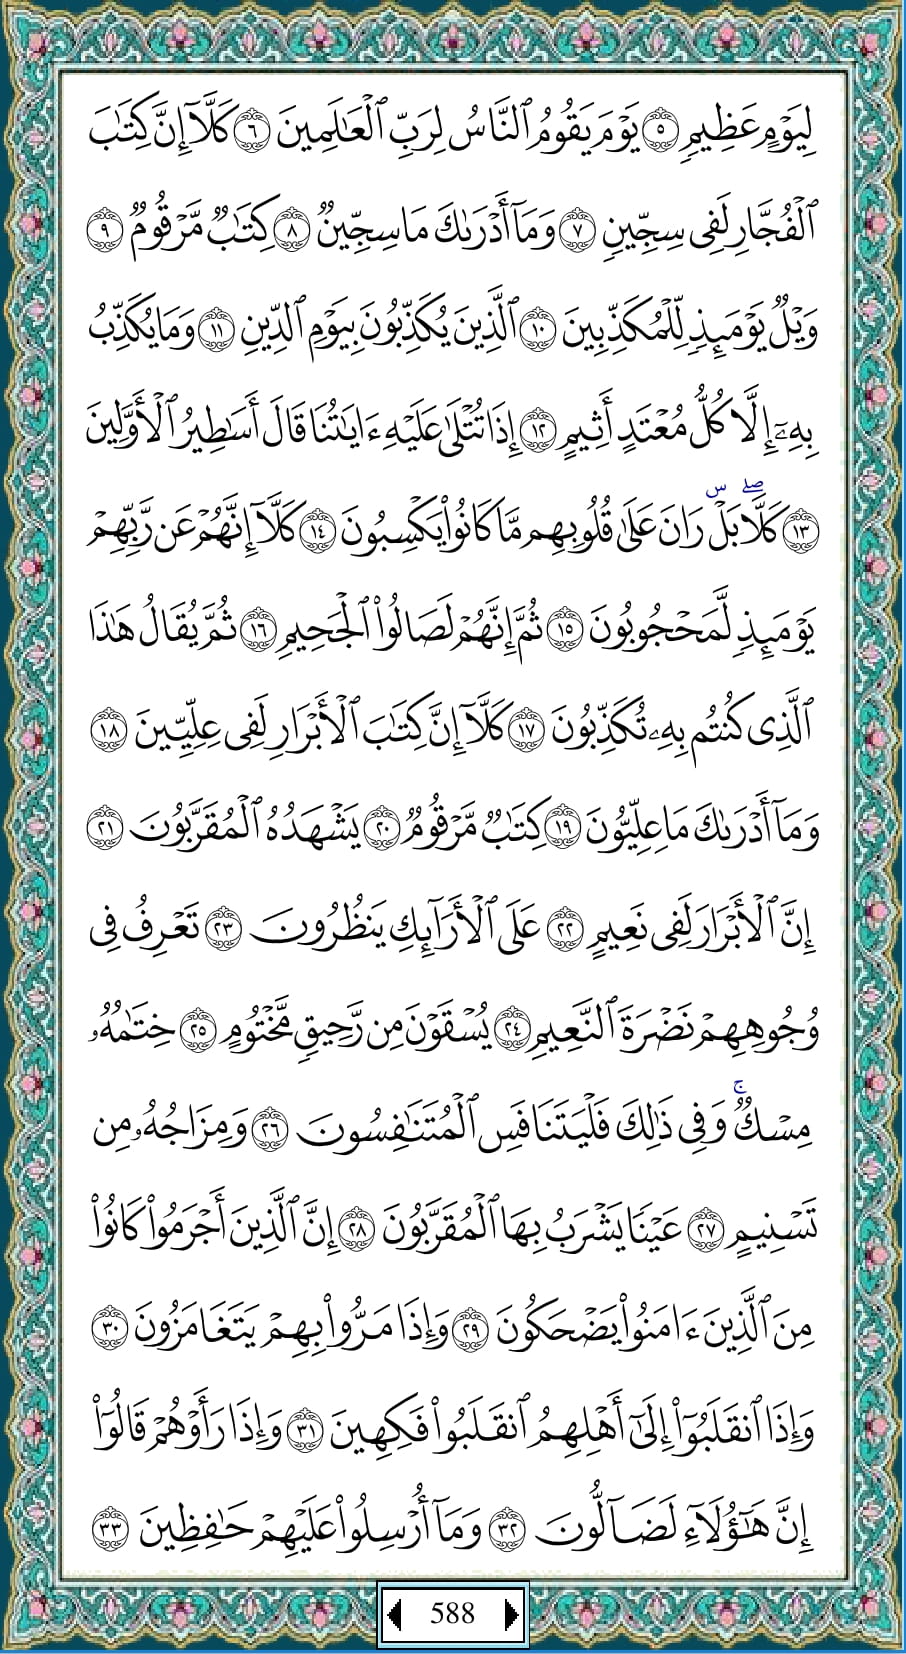 لِيَوْمٍ عَظِيمٍ ٥ يَوْمَ يَقُومُ ٱلنَّاسُ لِرَبِّ ٱلْعَٰلَمِينَ ٦ كَلَّآ إِنَّ كِتَٰبَ
ٱلْفُجَّارِ لَفِى سِجِّينٍ ٧ وَمَآ أَدْرَىٰكَ مَا سِجِّينٌ ٨ كِتَٰبٌ مَّرْقُومٌ ٩
وَيْلٌ يَوْمَئِذٍ لِّلْمُكَذِّبِينَ ١٠ ٱلَّذِينَ يُكَذِّبُونَ بِيَوْمِ ٱلدِّينِ ١١ وَمَا يُكَذِّبُ
بِهِۦٓ إِلَّا كُلُّ مُعْتَدٍ أَثِيمٍ ١٢ إِذَا تُتْلَىٰ عَلَيْهِ ءَايَٰتُنَا قَالَ أَسَٰطِيرُ ٱلْأَوَّلِينَ
١٣ كَلَّا ۖ بَلْ ۜ رَانَ عَلَىٰ قُلُوبِهِم مَّا كَانُوا۟ يَكْسِبُونَ ١٤ كَلَّآ إِنَّهُمْ عَن رَّبِّهِمْ
يَوْمَئِذٍ لَّمَحْجُوبُونَ ١٥ ثُمَّ إِنَّهُمْ لَصَالُوا۟ ٱلْجَحِيمِ ١٦ ثُمَّ يُقَالُ هَٰذَا
ٱلَّذِى كُنتُم بِهِۦ تُكَذِّبُونَ ١٧ كَلَّآ إِنَّ كِتَٰبَ ٱلْأَبْرَارِ لَفِى عِلِّيِّينَ ١٨
وَمَآ أَدْرَىٰكَ مَا عِلِّيُّونَ ١٩ كِتَٰبٌ مَّرْقُومٌ ٢٠ يَشْهَدُهُ ٱلْمُقَرَّبُونَ ٢١
إِنَّ ٱلْأَبْرَارَ لَفِى نَعِيمٍ ٢٢ عَلَى ٱلْأَرَآئِكِ يَنظُرُونَ ٢٣ تَعْرِفُ فِى
وُجُوهِهِمْ نَضْرَةَ ٱلنَّعِيمِ ٢٤ يُسْقَوْنَ مِن رَّحِيقٍ مَّخْتُومٍ ٢٥ خِتَٰمُهُۥ
مِسْكٌ ۚ وَفِى ذَٰلِكَ فَلْيَتَنَافَسِ ٱلْمُتَنَٰفِسُونَ ٢٦ وَمِزَاجُهُۥ مِن
تَسْنِيمٍ ٢٧ عَيْنًا يَشْرَبُ بِهَا ٱلْمُقَرَّبُونَ ٢٨ إِنَّ ٱلَّذِينَ أَجْرَمُوا۟ كَانُوا۟
مِنَ ٱلَّذِينَ ءَامَنُوا۟ يَضْحَكُونَ ٢٩ وَإِذَا مَرُّوا۟ بِهِمْ يَتَغَامَزُونَ ٣٠
وَإِذَا ٱنقَلَبُوٓا۟ إِلَىٰٓ أَهْلِهِمُ ٱنقَلَبُوا۟ فَكِهِينَ ٣١ وَإِذَا رَأَوْهُمْ قَالُوٓا۟
إِنَّ هَٰٓؤُلَآءِ لَضَآلُّونَ ٣٢ وَمَآ أُرْسِلُوا۟ عَلَيْهِمْ حَٰفِظِينَ ٣٣
588